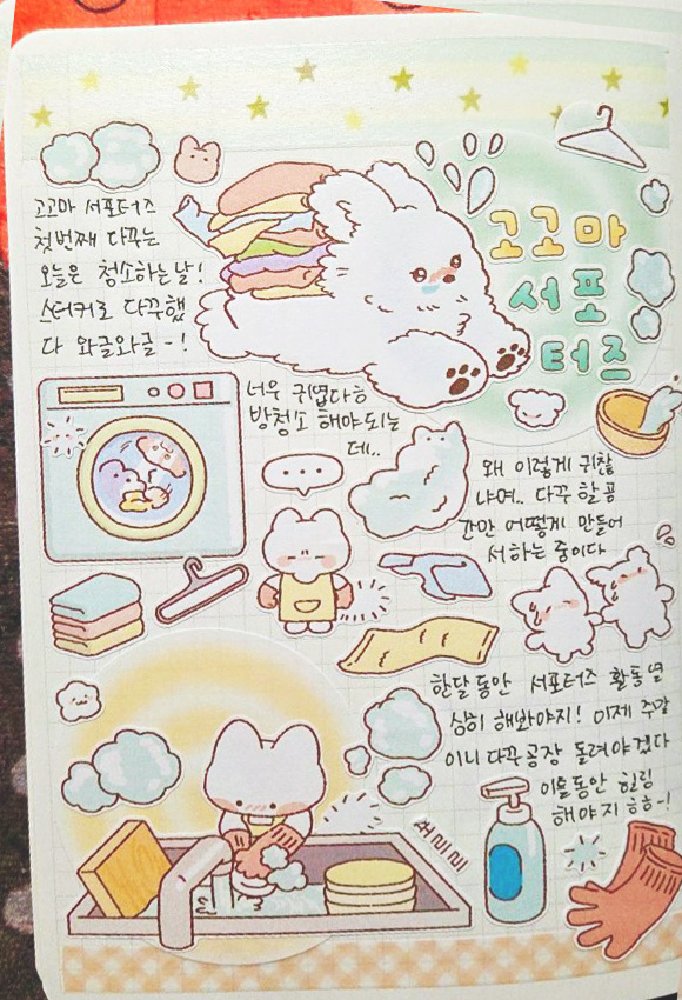 고꼬마 서포터즈
첫번째 다꾸는
오늘은 청소하는날!
스티커로 다꾸했
다 와글와글-!
고고마
서포
터즈
너무 귀엽다하
방청소 해야되는
데..
...
왜 이렇게 귀찮
냐며.. 다꾸 할 공
간만 어떻게 만들어
서 하는 중이다
한달동안 서포터즈 활동 열
심히 해봐야지! 이제 주말
이니 다꾸공장 돌려야겠다
이틀동안 힐링
해야지 흐흐-!